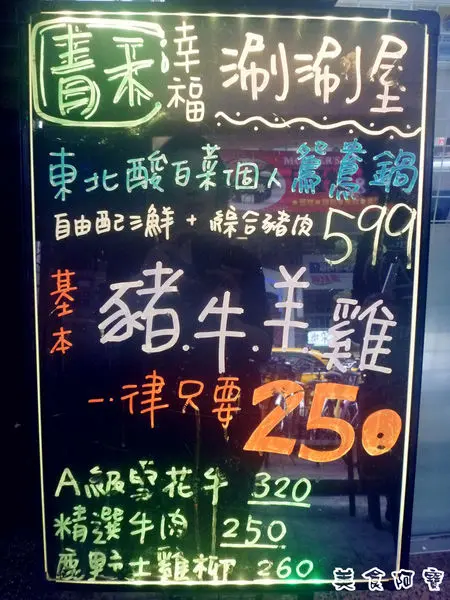 青采 幸福 涮涮屋
東北酸白菜個人鴛鴦鍋
自由配三鮮 + 綜合豬肉 599
基本 豬.牛.羊.雞
一律只要 250
A級雪花牛 320
精選牛肉 250
鹿野土雞柳 260
美食阿寶